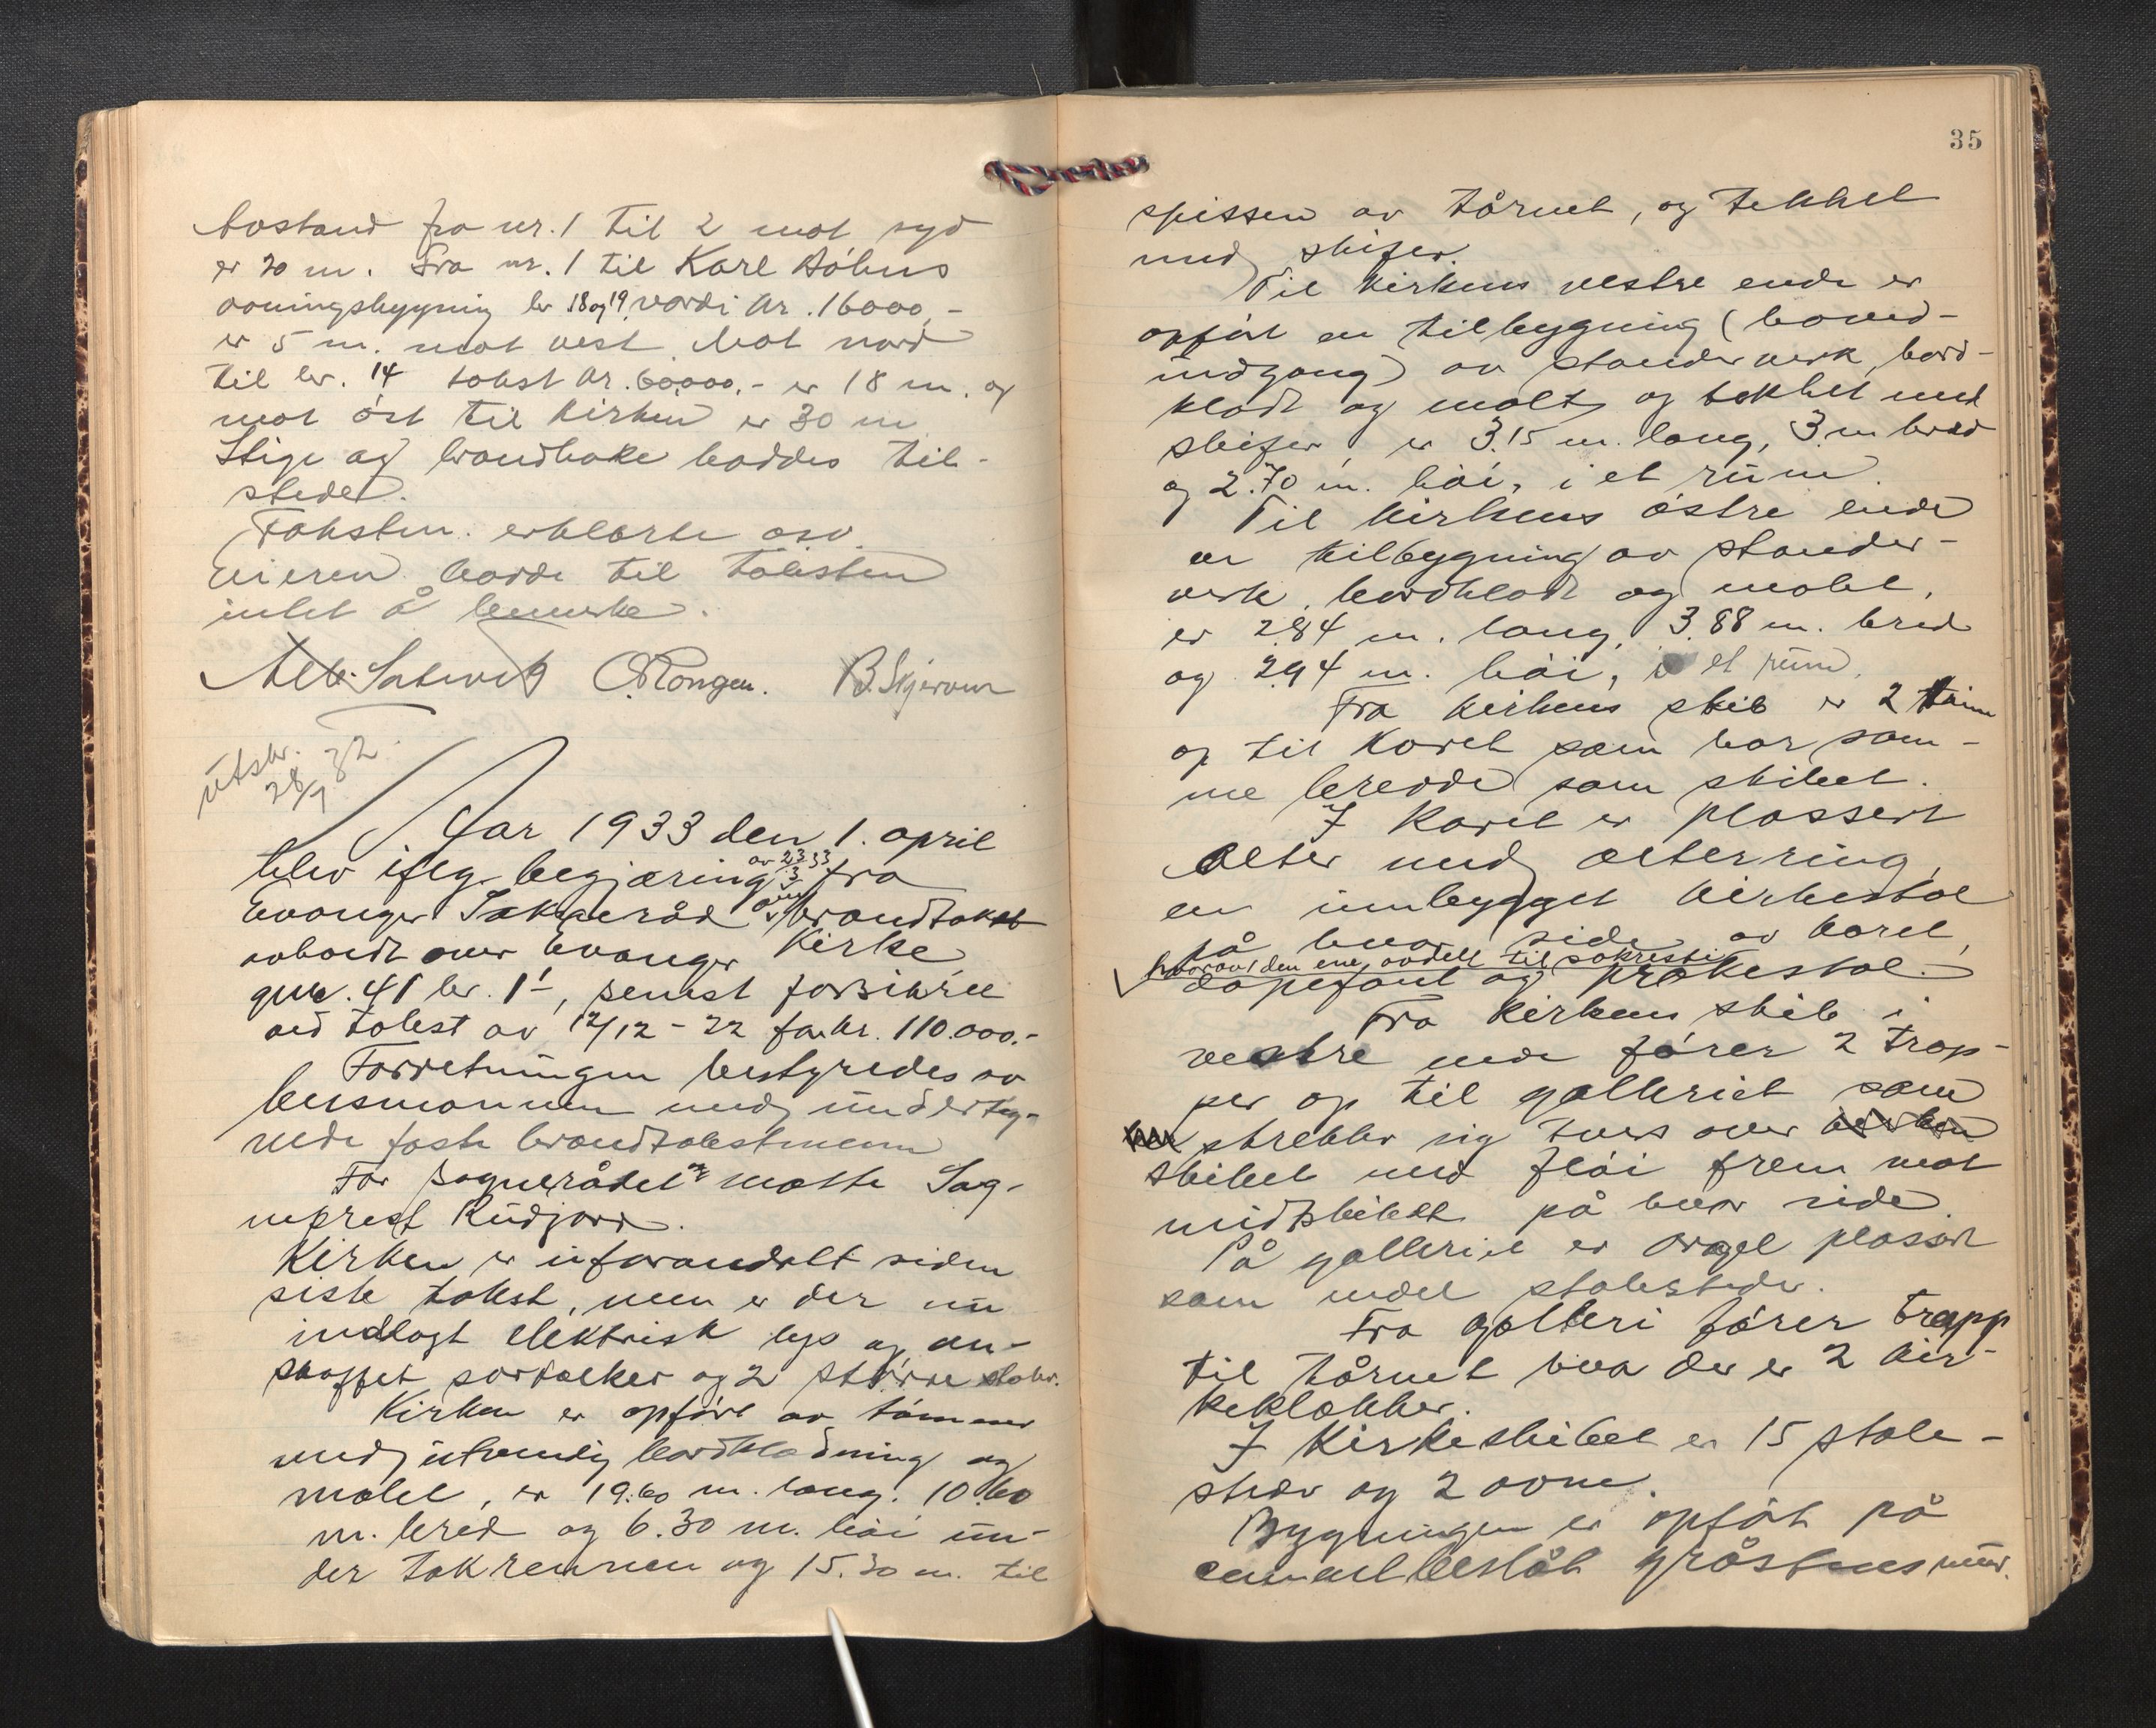 Avstand fra nr. 1 til 2 mot syd
er 20 m. Fra nr. 1 til Karl
våningsbygning br 18 og 19 værdi kr. 16000,-
er 5 m. mot vest. Mot nord
til br. 14 takst kr. 60,000.- er 18 m. og
mot öst til Kirken er 30 m
Stige og brandhake haddes til-
stede.
Taksten. erklærte osv.
Eieren hadde til taksten
intet å bemerke.
O Rongen. B. Skjerven
utskr.
28/7 32.
År 1933 den 1. april
blev iflg. begjæring av 23/3 33 fra
Evanger Sokneråd ny brandtakst
avholdt over Evanger Kirke
gnr. 41 br. 1, senest forsikret
ved takst av 12/12 - 22 for kr. 110.000.-
Forretningen bestyredes av
lensmannen med underteg-
nede faste brandtakstmenn
For sognerådet møtte Sog-
neprest Rudjord.
Kirken er uforandret siden
siste takst, men er der nu
indlagt elektrisk lys og an-
skaffet 2 större
Kirken er opfört av tömmer
med utvendig bordklædning og
malet, er 19.60 m. lang. 10.60
m. bred og 6.30 m. höi un-
der takrennen og 15.30 m. til
35
spissen av tårnet, og tekket
med skifer.
Til kirkens vestre ende er
opfört en tilbygning (hoved-
indgang) av stenderverk, bord-
klædt og malt, og tekket med
skifer er 3.15 m. lang, 3 m bred
og 2.70 m. höi, i et rum.
Til kirkens östre ende
en tilbygning av stender-
verk, bordklædt og malet,
er 2.84 m. lang, 3.88 m. bred
og 2.94 m. höi, i et rum.
Fra kirkens skib er 2 trin
op til Koret som har sam-
me bredde som skibet.
I Koret er plassert
Alter med alterring,
en innbygget kirkestol
på hver side av koret,
hvorav den ene avdelt til sakresti
döpefont og prekestol.
Fra kirkens skib i
vestre ende förer 2 trap-
per op til galleriet som
strekker sig tvers over kirken
skibet med flöi frem mot
midtskibet på hver side.
På galleriet er orgel plassert
samt endel stolesteder.
Fra galleri förer trapp
til tårnet hvor der er 2 kir-
keklokker.
I Kirkeskibet er 15 stole-
steder og 2 ovne.
Bygningen er opfört på
gråstensmur.